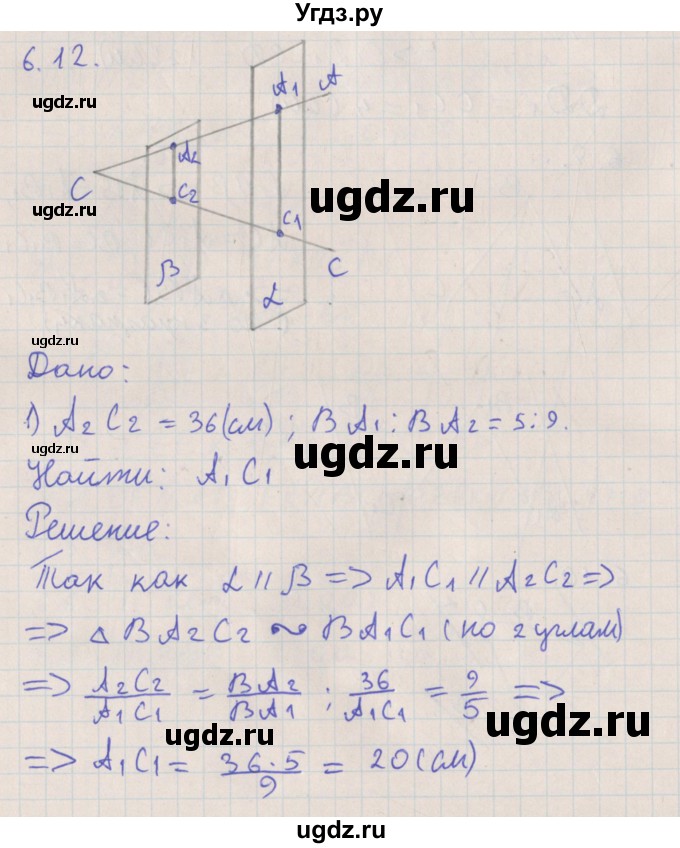 Угдз.ру
6.12.
ugdz.ru
A1 A
A2
C
C2
ugdz.ru
ugdz.ru
C1
C
β
α
ugdz.ru
Дано:
1) A2C2 = 36(см); BA1:BA2 = 5:9.
ugdz.ru
Найти: A1C1
Решение:
Так как α // β => A1C1 // A2C2 =>
=> △ BA2C2 ~ BA1C1 (по 2 углам)
=> A2C2/A1C1 = BA2/BA1 ; 36/A1C1 = 9/5 =>
ugdz.ru
ugdz.ru
=> A1C1 = 36·5/9 = 20(см)
ugdz.ru
ugdz.ru